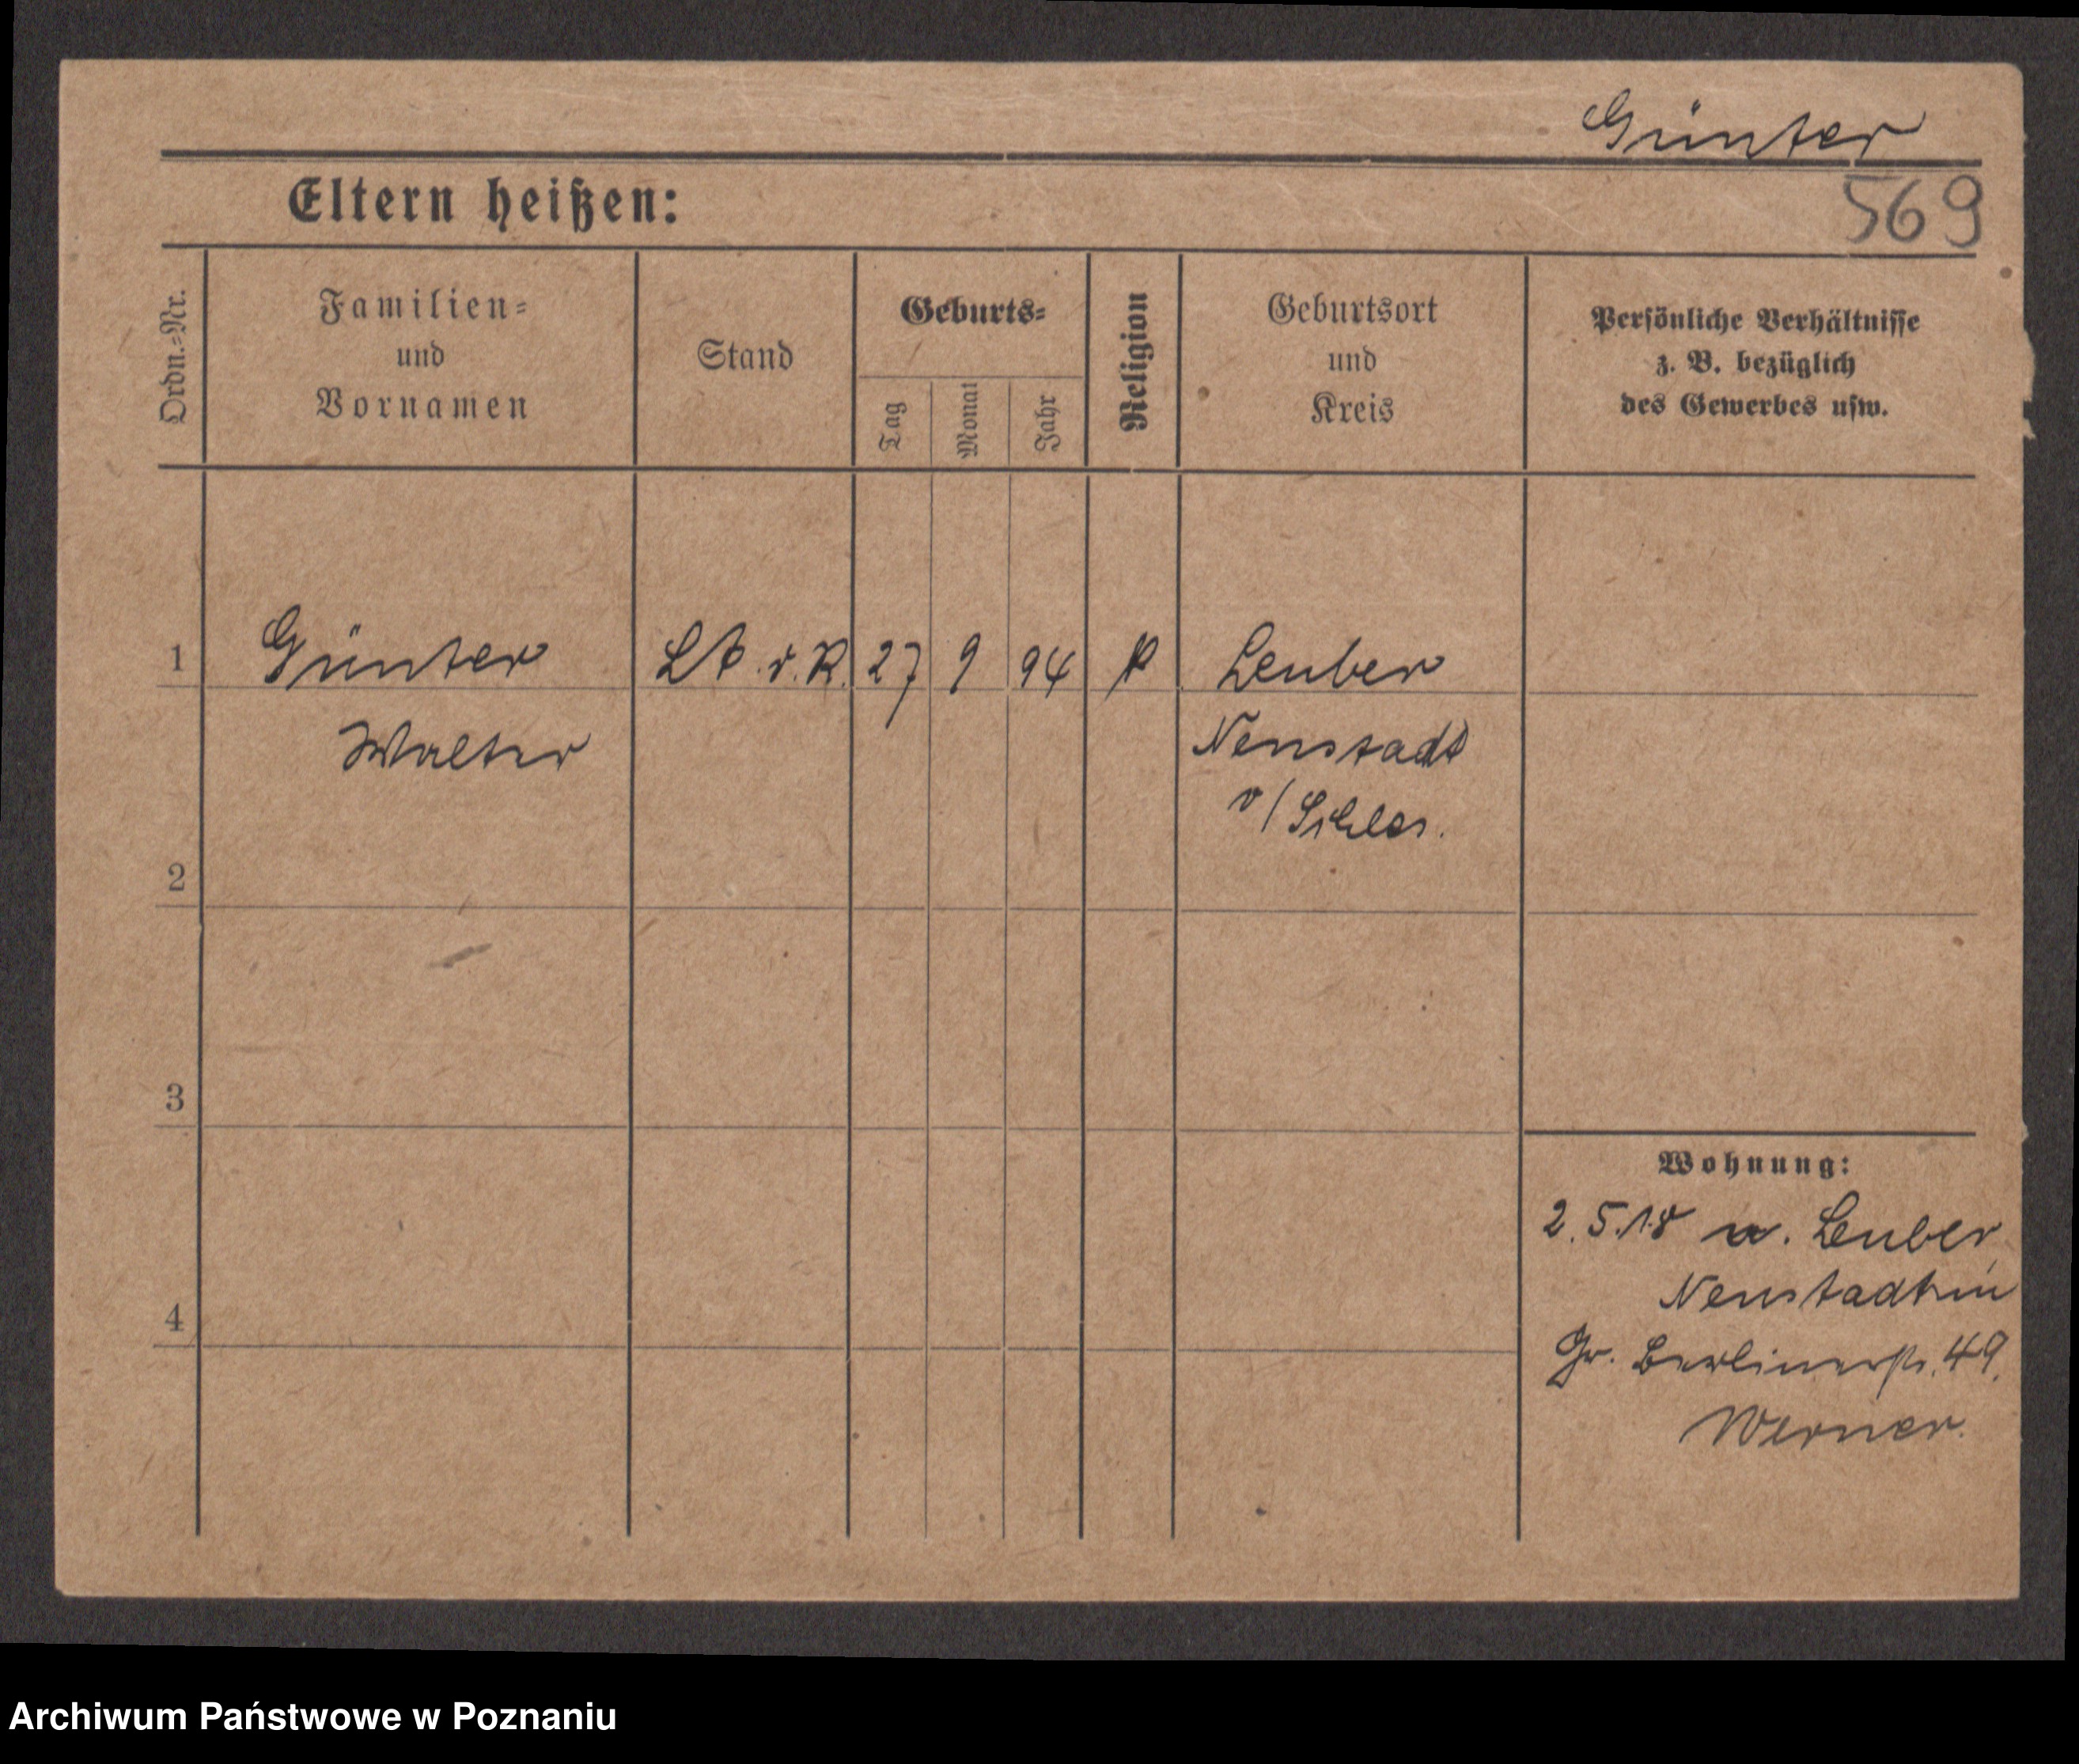 Günter
Eltern heißen:
569
Ordn.=Nr.
Familien=
und
Vornamen
Stand
Geburts=
Tag
Monat
Jahr
Religion
Geburtsort
und
Kreis
Persönliche Verhältnisse
z. B. bezüglich
des Gewerbes usw.
1 Günter Lt. d. R. 27 9 94 K Leuber
Walter Neustadt
o/Schles.
2
3
Wohnung:
2.5.18 v. Leuber
Neustadt
4
Gr. Berlinerstr. 49.
Werner.
Archiwum Państwowe w Poznaniu